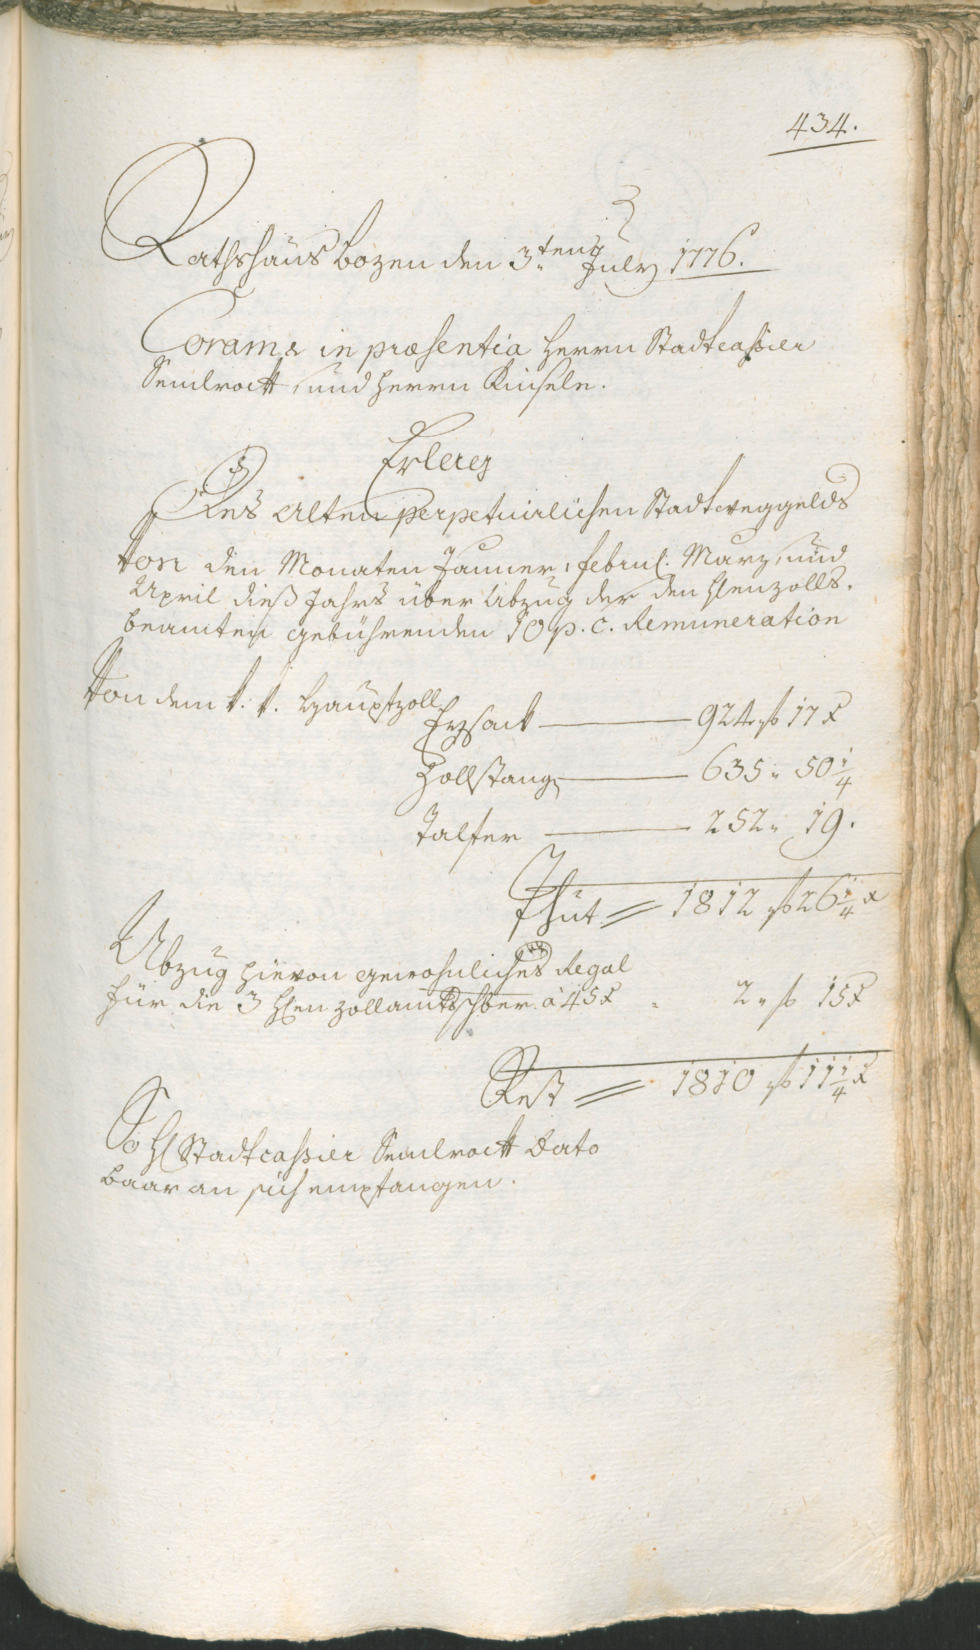 434.
Rathshaus Bozen den 3.ten July 1776.
Coram & in præsentia Herrn Stadtcassier
und Herrn Kinsele.
Erleg
Des Alten perpetuirlichen Stadtweggelds
von den Monaten Jenner, Februar. Marz, und
April dieß Jahrs über Abzug der den Hlen Zolls-
beamten gebührenden 10 p. c. Remuneration
Von dem t. t. Hauptzoll
Eysack — 924 f 17 x
Zollstang — 635 " 50 1/4
Talfer — 252 " 19.
Thut = 1812 f 26 1/4 x
Abzug hievon gewohnliches Regal
für die 3 Hlen Zollamtschber. à 45 x " 2 " f 15 x
Rest = 1810 f 11 1/4 x
So Hl Stadtcassier Dato
baar an sich empfangen.